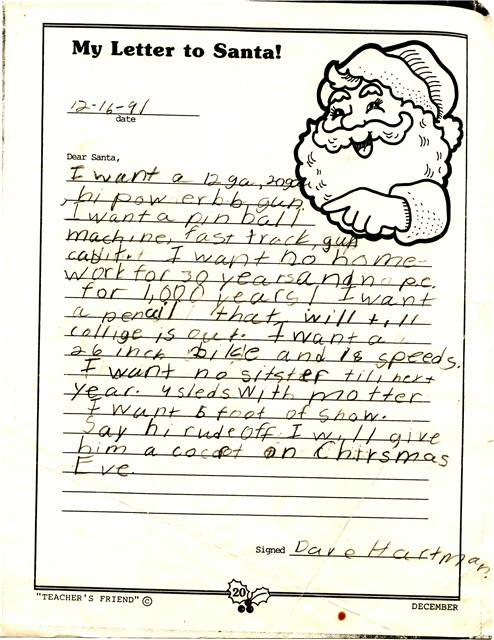 My Letter to Santa!
12-16-91
date
Dear Santa,
I want a 12 ga, 20ga
, hi pow erbb gun
I want a pin ball
machine, fast track, gun
I want no home-
work for 30 years and no p.c.
for 1,000 years! I want
a pencil that will till
collige is out. I want a
26 inch bike and 18 speeds.
I want no sitster till next
year. 4 sleds with motter
I want 5 foot of snow.
Say hi rudeoff I will give
him a on Chirsmas
Eve.
Signed Dave Hartman
"TEACHER'S FRIEND" ©
20
DECEMBER